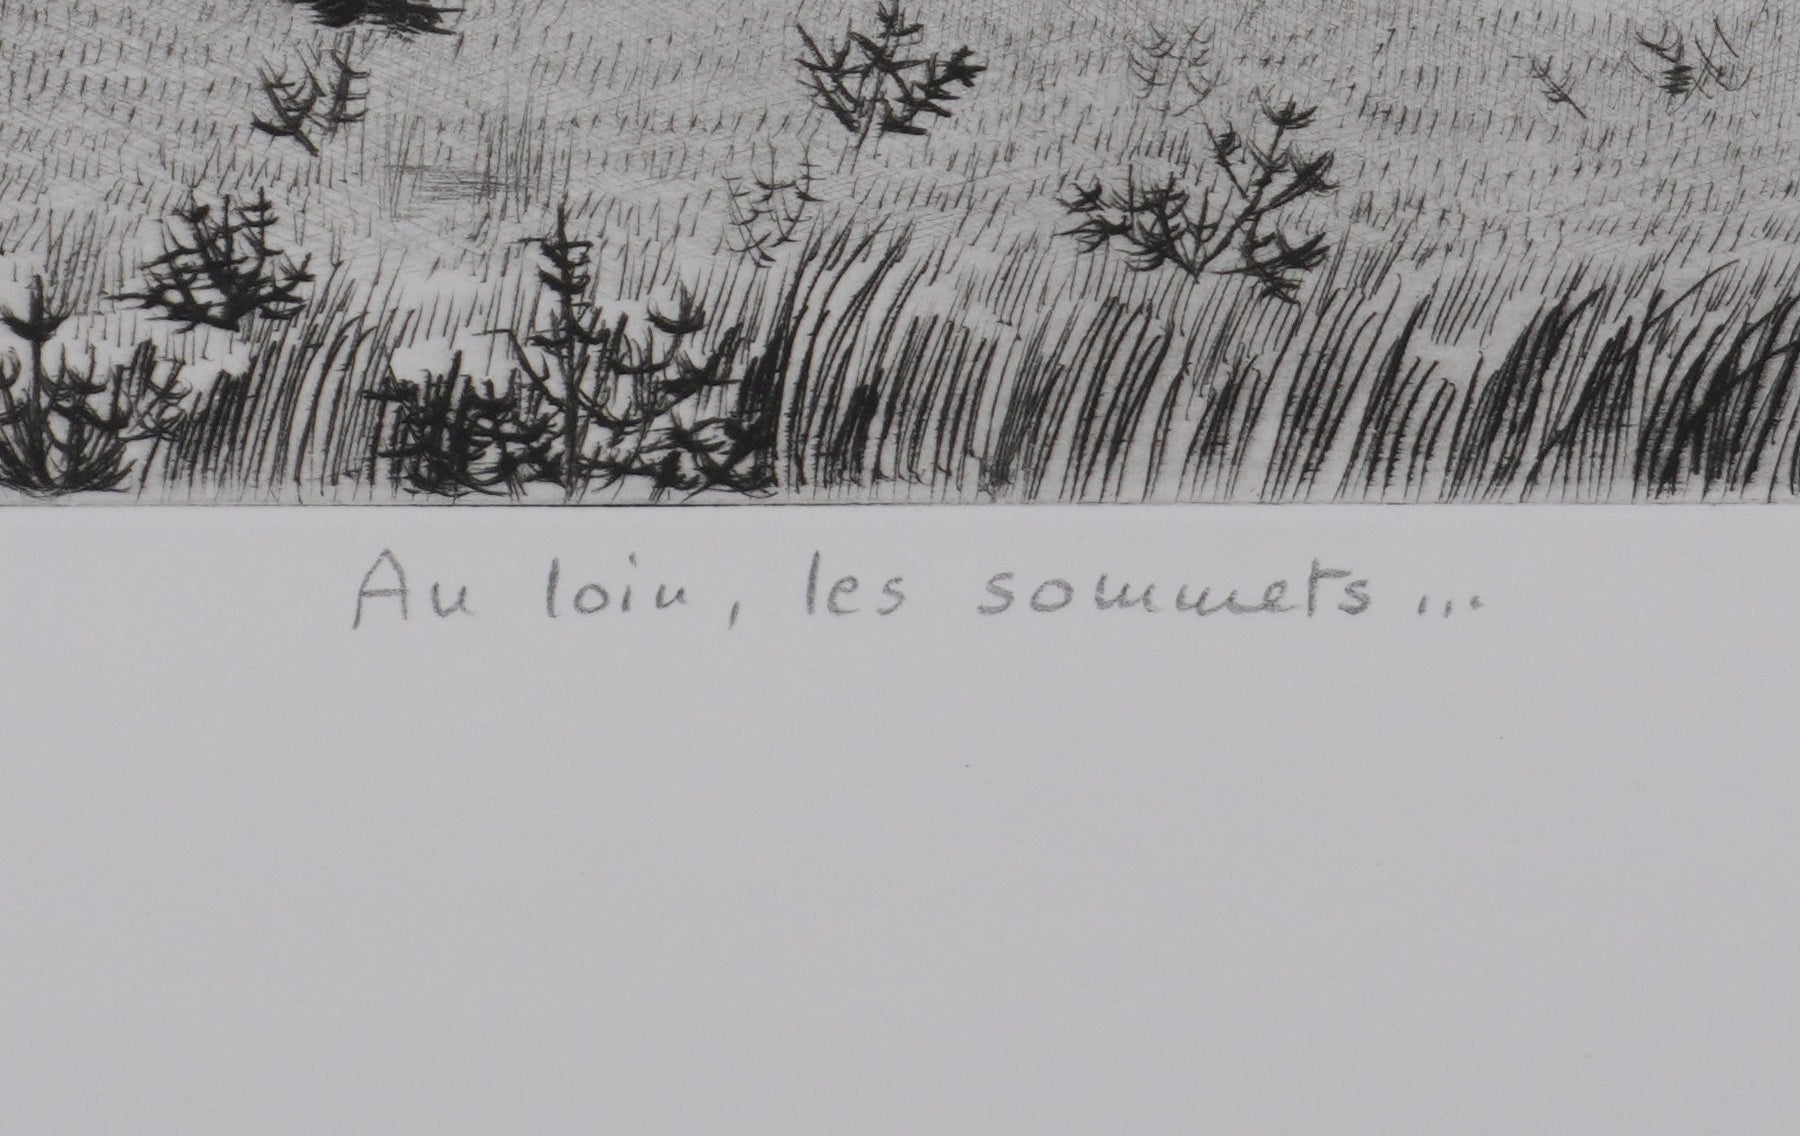 Au loin, les sommets...